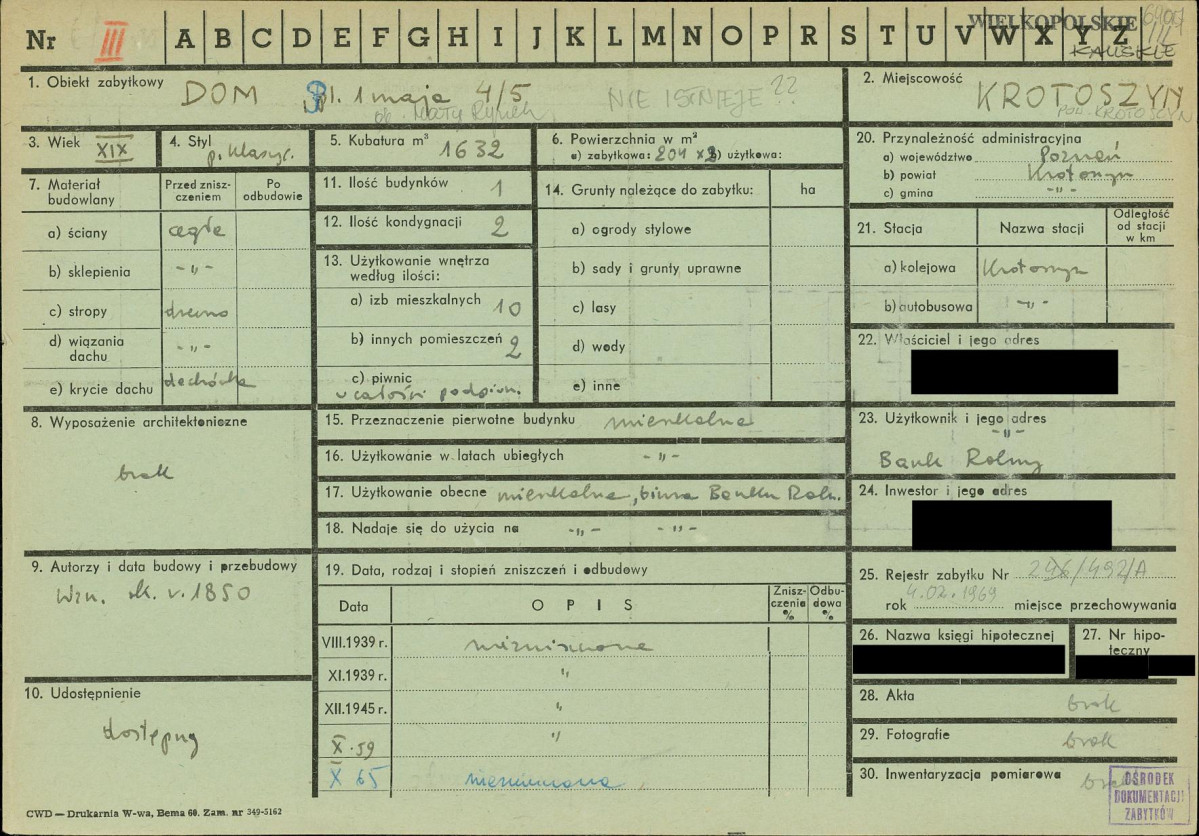 Nr III A B C D E F G H I J K L M N O P R S T U V W X Y Z
WIELKOPOLSKIE
KALISKIE
1. Obiekt zabytkowy DOM pl. 1 maja 4/5 NIE ISTNIEJE ??
ob. Mały Rynek
2. Miejscowość
KROTOSZYN
POW. KROTOSZYN
3. Wiek XIX
4. Styl
p. klasyc.
5. Kubatura m³
1632
6. Powierzchnia w m²
a) zabytkowa: 204 x 2 b) użytkowa:
20. Przynależność administracyjna
a) województwo Poznań
b) powiat Krotoszyn
c) gmina -"-
7. Materiał budowlany
Przed zniszczeniem
Po odbudowie
a) ściany cegła
b) sklepienia -"-
c) stropy drewno
d) wiązania dachu -"-
e) krycie dachu dachówka
11. Ilość budynków 1
12. Ilość kondygnacji 2
13. Użytkowanie wnętrza
według ilości:
a) izb mieszkalnych 10
b) innych pomieszczeń 2
c) piwnic
w całości podpiwn.
14. Grunty należące do zabytku: ha
a) ogrody stylowe
b) sady i grunty uprawne
c) lasy
d) wody
e) inne
21. Stacja
Nazwa stacji
Odległość
od stacji
w km
a) kolejowa Krotoszyn
b) autobusowa -"-
22. Właściciel i jego adres
8. Wyposażenie architektoniczne
brak
15. Przeznaczenie pierwotne budynku mieszkalne
16. Użytkowanie w latach ubiegłych -"-
17. Użytkowanie obecne mieszkalne, biura Banku Roln.
18. Nadaje się do użycia na -"- -"-
23. Użytkownik i jego adres
-"-
Bank Rolny
24. Inwestor i jego adres
9. Autorzy i data budowy i przebudowy
Wzn. ok. r. 1850
19. Data, rodzaj i stopień zniszczeń i odbudowy
Data
OPIS
Zniszczenia %
Odbudowa %
VIII.1939 r. niezniszczone
XI.1939 r. "
XII.1945 r. "
X. 59 "
X 65 niezniszczone
25. Rejestr zabytku Nr 296/492/A
4.02.1969
rok miejsce przechowywania
26. Nazwa księgi hipotecznej
27. Nr hipoteczny
10. Udostępnienie
dostępny
28. Akta brak
29. Fotografie brak
30. Inwentaryzacja pomiarowa brak
OŚRODEK
DOKUMENTACJI
ZABYTKÓW
CWD — Drukarnia W-wa, Bema 60. Zam. nr 349-5162